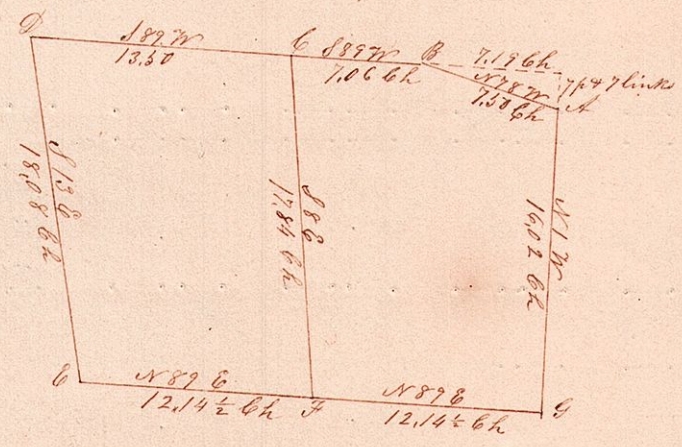 D
S 89 W
13,50
C
S 89 W
7,06 Ch
B
7,19 Ch
N 78 W
7,50 Ch
7 links
A
S 13 E
18,08 Ch
S 8 E
17,84 Ch
N 1 W
16,02 Ch
E
N 89 E
12,14 ½ Ch
F
N 89 E
12,14 ½ Ch
G